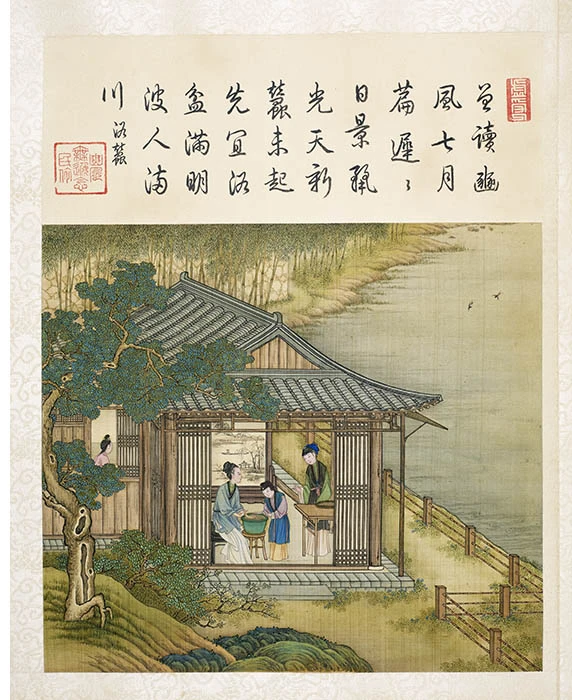 曾讀豳
風七月
篇遲〻
日景
光天新
蠶未起
先宜浴
盆滿明
波人滿
川
浴蠶